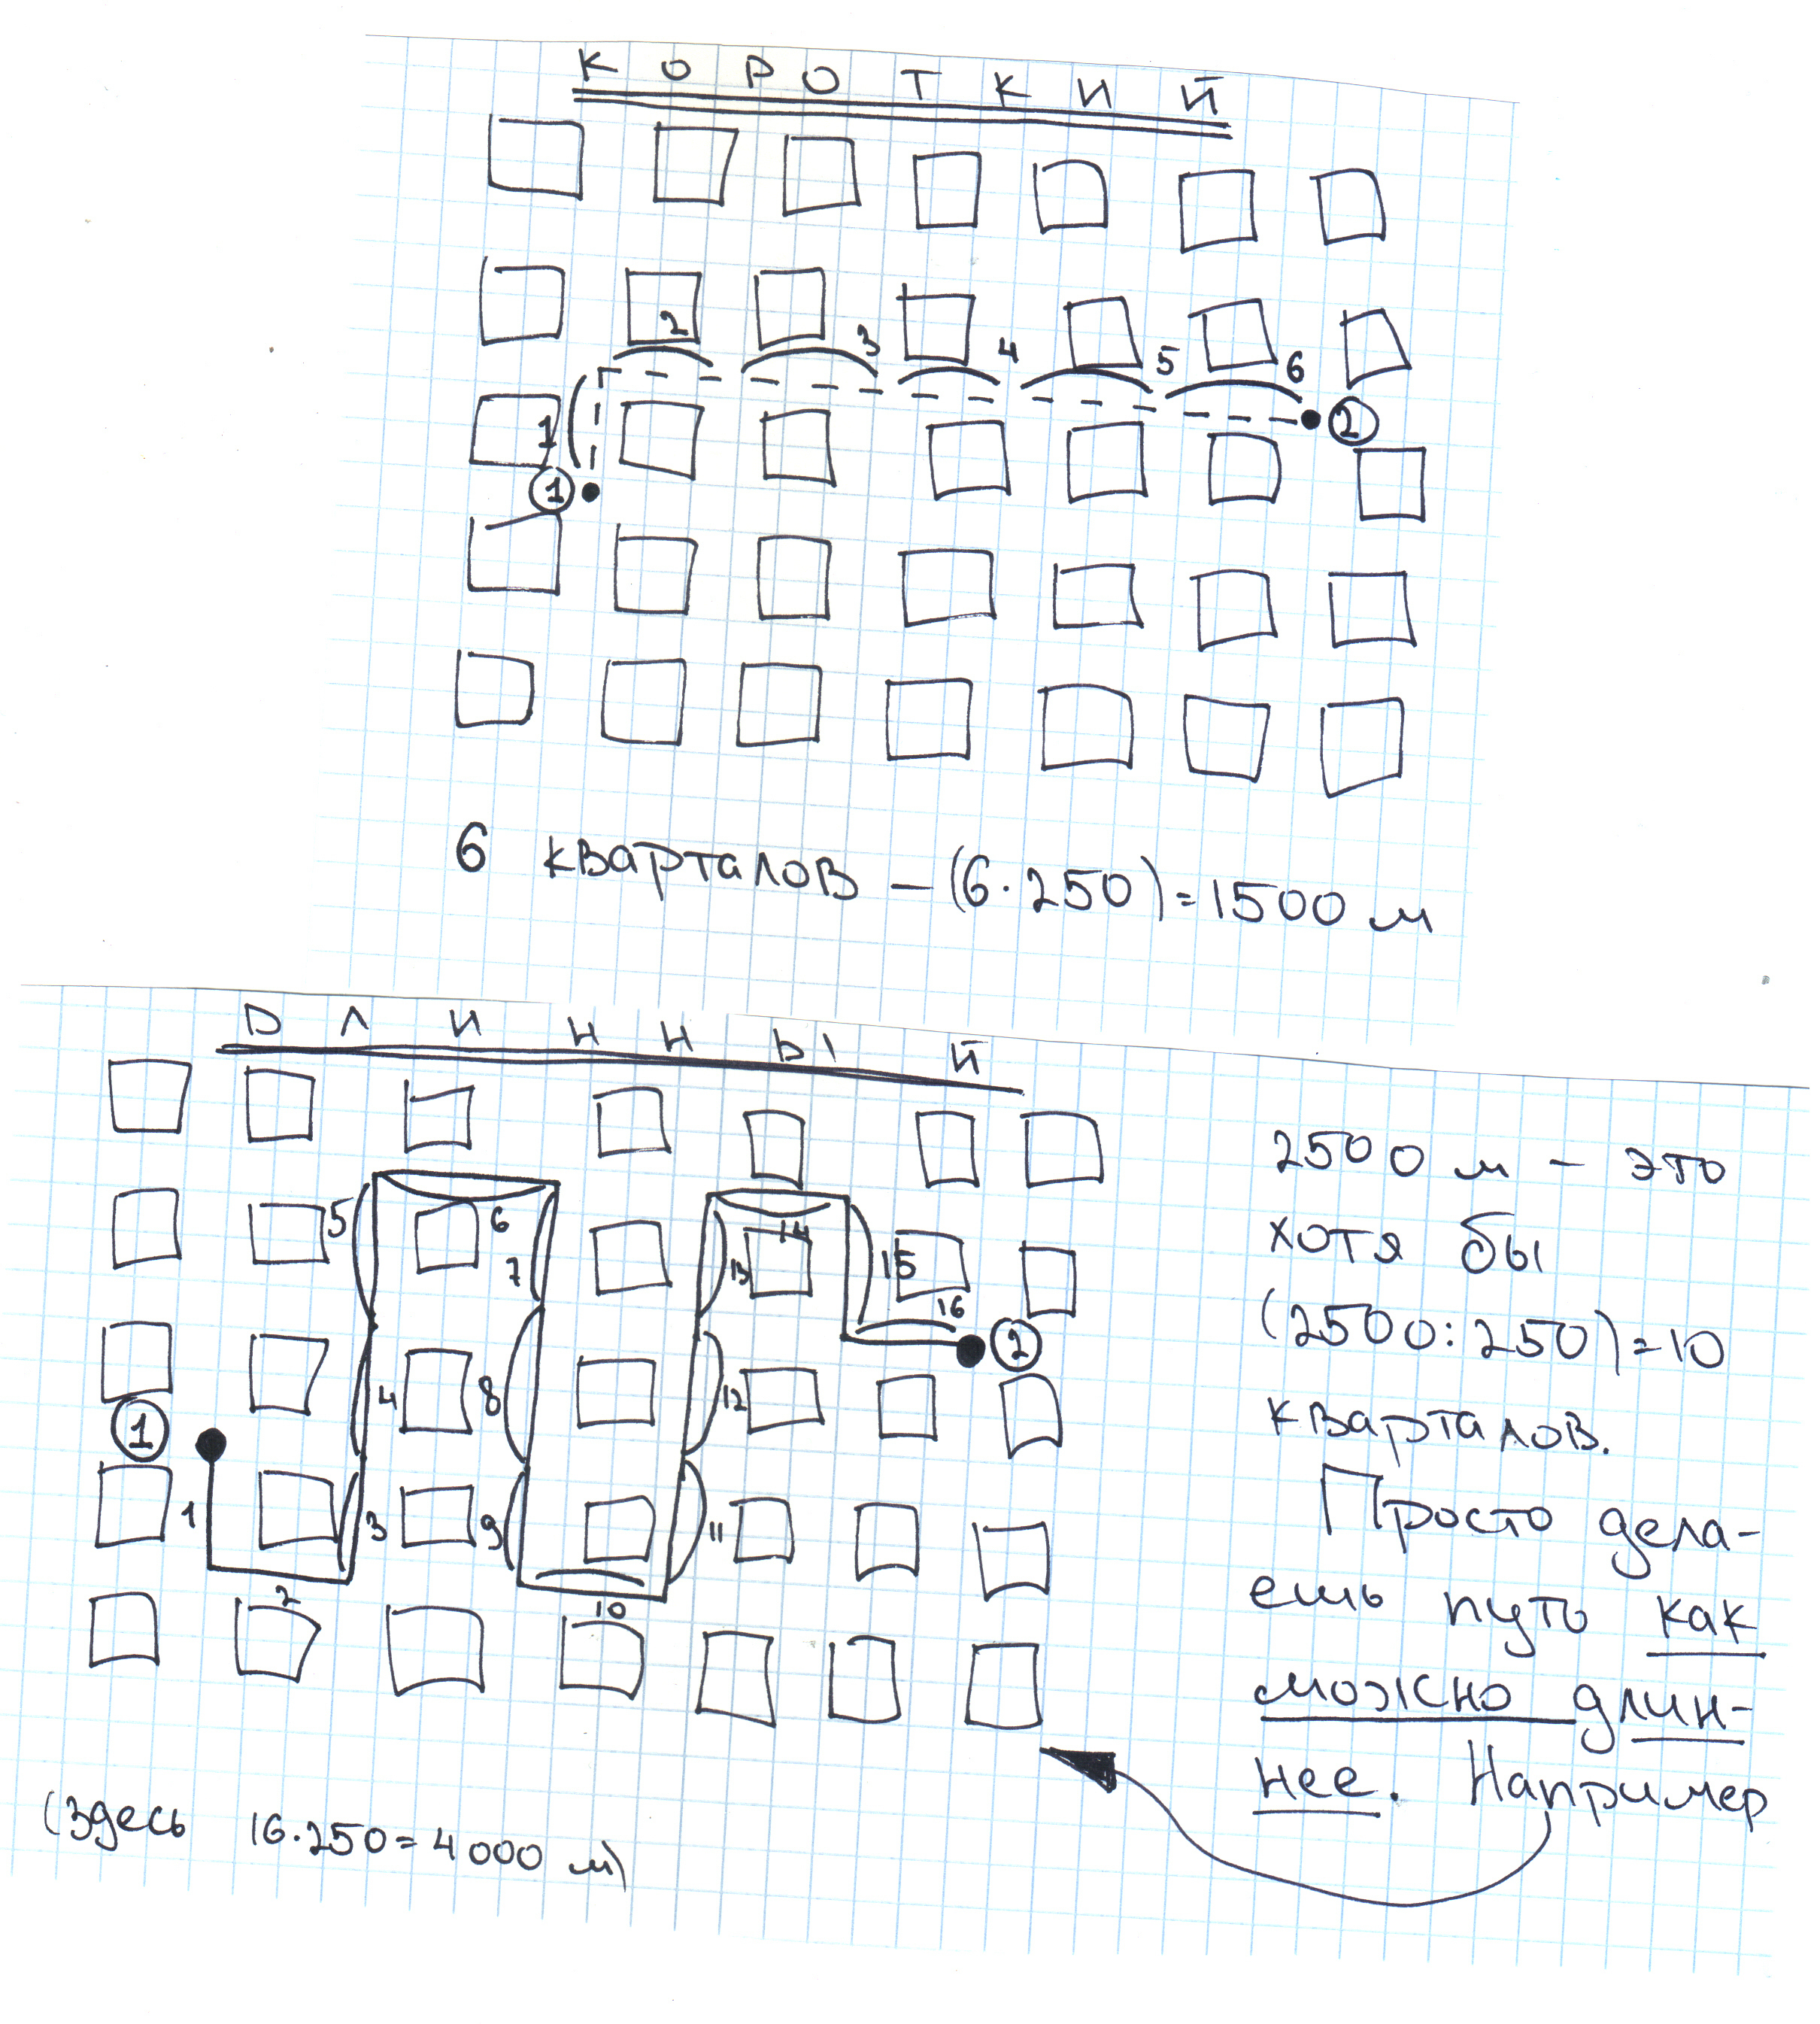 КОРОТКИЙ
2
3
4
5
6
1
2
1
6 кварталов – (6·250)=1500 м
ДЛИННЫЙ
5
6
7
13
14
15
16
2
4
8
12
1
1
3
9
11
2
10
(Здесь 16·250=4000 м)
2500 м – это
хотя бы
(2500:250)=10
кварталов.
Просто дела-
ешь путь как
можно длин-
нее. Например